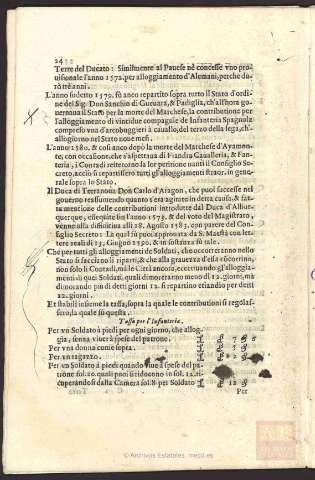 24
Terre del Ducato: Similmente al Pauese nè concesse vno pro-
uisionale l'anno 1572. per alloggiamento d'Alemani, perche du-
rò trè anni.
L'anno sudetto 1579. fù anco repartito sopra tutto il Stato d'ordi-
ne del Sig. Don Sanchio di Gueuara, & Padiglia, ch'all'hora go-
uernaua il Stato per la morte del Marchese, la contributione per
l'alloggiamento di vintidue compagnie de Infanteria Spagnola
compreso vna d'arcobuggieri à cauallo, del terzo della lega, ch'
allogiorno nel Stato noue mesi.
L'anno 1580. & così anco dopo la morte del Marchese d'Ayamon-
te, con occasione, che s'aspettaua di Fiandra Cauallería, & Fan-
teria, i Contadi reiterorno la lor petitione nanti il Consiglio Se-
creto, acciò si repartissero tutti gli alloggiamenti straor. in gene-
rale sopra lo Stato.
Il Duca di Terranoua Don Carlo d'Aragon, che puoi successe nel
gouerno reassumendo quanto s'era agitato in detta causa, & fat-
ta mentione delle contributioni introdutte dal Duca d'Albur-
querque, essequite sin l'anno 1573. & del voto del Magistrato,
venne alla diffinitiua alli 28. Agosto 1583. con parere del Consi-
glio Secreto: La qual fù puoi approuata da S. Maestà con let-
tere reali di 23. Giugno 1590. & in sostanza fù tale.
Che per tutti gli alloggiamenti de Soldati, che occorreranno nello
Stato si faccino li riparti, & che alla grauezza d'essi concorrino,
non solo li Contadi, mà le Città ancora, eccettuando gl'alloggia-
menti di quei Soldati, quali dimoreranno meno di 12. giorni, mà
dimorando più di detti giorni 12. si repartino etiandio per detti
12. giorni.
Et stabilì insieme la tassa, sopra la quale le contributioni si regolas-
sero, la quale fù questa.
Tassa per l'Infanteria.
Per vn Soldato à piedi per ogni giorno, che allog-
gia, senza viuer à spese del patrone. 7 8
Per vna donna come sopra. 5
Per vn ragazzo.
Per vn Soldato à piedi quando viue à spese del pa-
trone sol. 20. quali puoi si riducono in sol. 12. ri-
cuperandosi dalla Camera sol. 8 per Soldato 12
Per
© Archivos Estatales, mecd.es